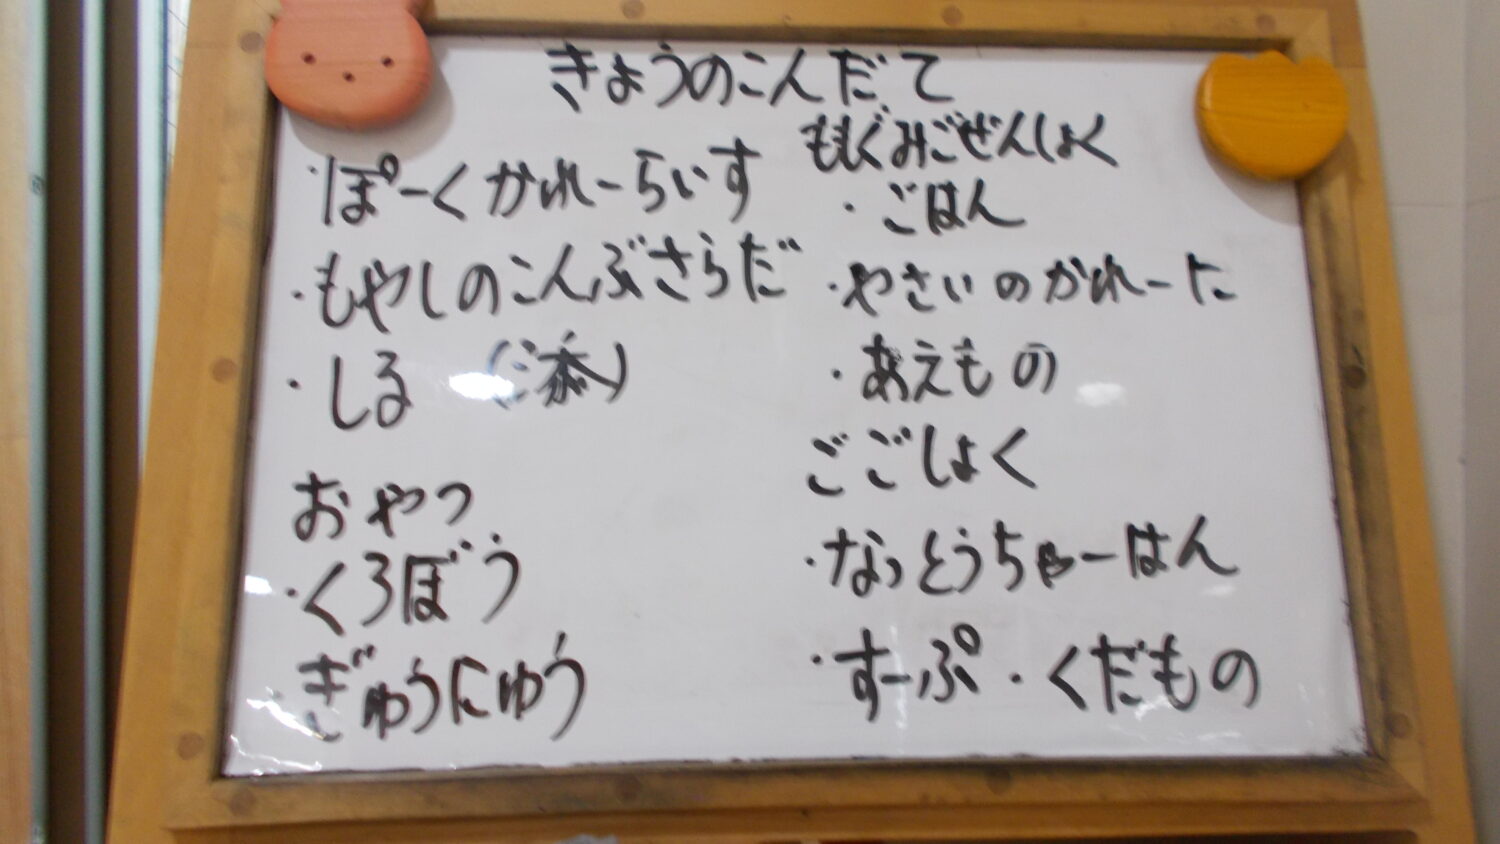 きょうのこんだて
・ぽーくかれーらいす
・もやしのこんぶさらだ
・しる
おやつ
・くろぼう
・ぎゅうにゅう
ももぐみごぜんしょく
・ごはん
・やさいのかれーに
・あえもの
ごごしょく
・なっとうちゃーはん
・すーぷ・くだもの